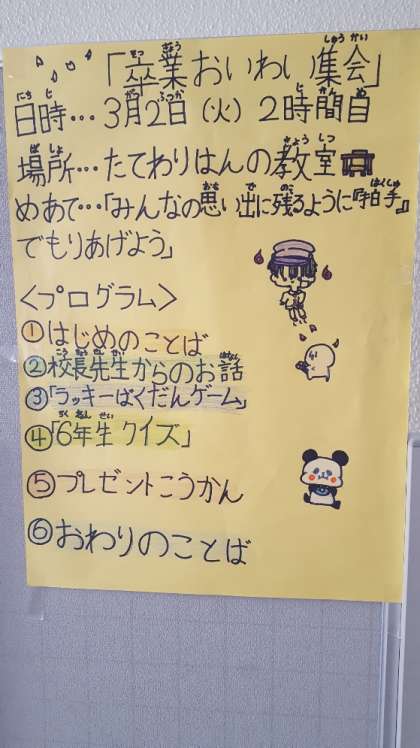 「卒業おいわい集会」
日時…3月2日(火) 2時間目
場所…たてわりはんの教室
めあて…「みんなの思い出に残るように『拍手』
でもりあげよう」
<プログラム>
①はじめのことば
②校長先生からのお話
③「ラッキーばくだんゲーム」
④「6年生クイズ」
⑤プレゼントこうかん
⑥おわりのことば